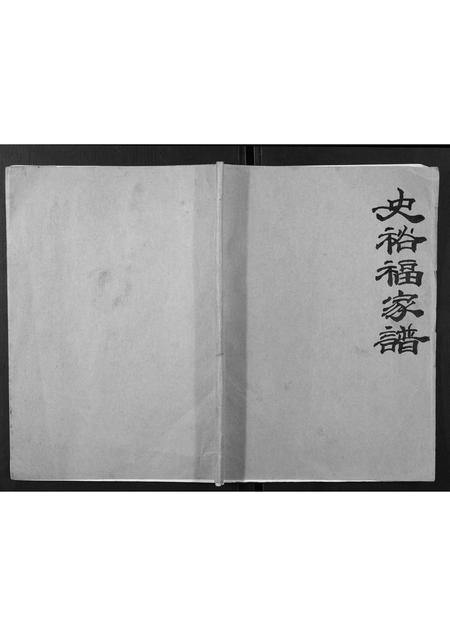 史裕福家譜